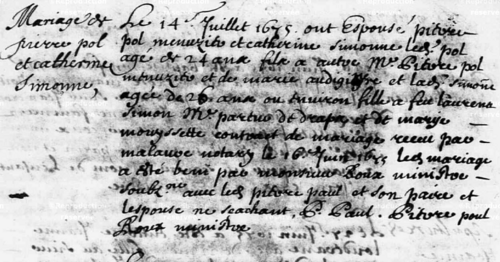 Mariage de
pierre pol
et catherine
Simonne,
Le 14e Juillet 1675 ont Espousé pitore
pol menusito et catherine simonne led pol
age de 24 ans fils a autre Me Pitore pol
menusito et de marie audigiffre et lad simone
agée de 26 ans ou tnuiron fille a feu laurens
simon Me partur de draps et de marye
mouyssette contract de mariage receu par
malauze notary le 16e Juin 1675 led mariage
a este beni par monsieur Roux ministre
soubzne avec led pitore paul et son paire et
lespouse ne scachant P. Paul. Pitore poul
Roux ministre